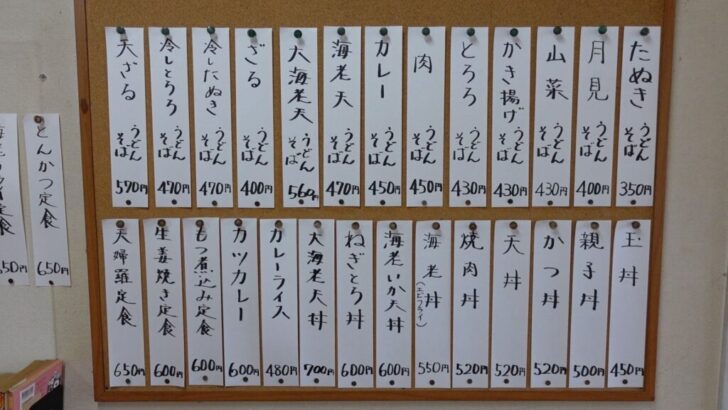 たぬき うどん そば 350円
月見 うどん そば 400円
山菜 うどん そば 430円
かき揚げ うどん そば 430円
とろろ うどん そば 430円
肉 うどん そば 450円
カレー うどん そば 450円
海老天 うどん そば 470円
大海老天 うどん そば 560円
ざる うどん そば 400円
冷したぬき うどん そば 470円
冷しとろろ うどん そば 470円
天ざる うどん そば 570円
玉丼 450円
親子丼 500円
かつ丼 520円
天丼 520円
焼肉丼 520円
海老丼 (エビフライ) 550円
海老いか天丼 600円
ねぎとろ丼 600円
大海老天丼 700円
カレーライス 480円
カツカレー 600円
もつ煮込み定食 600円
生姜焼き定食 600円
天婦羅定食 650円
とんかつ定食 650円
定食 50円